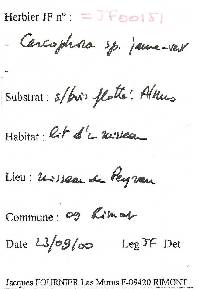 Herbier JF n° : = JF00151
Cercophora sp. jaune-vert
-
Substrat : s/bois flotté : Alnus
Habitat : lit d'un ruisseau
Lieu : ruisseau de
Commune : 09 Rimont
Date 23/09/00 Leg JF Det
Jacques FOURNIER Las Muros F-09420 RIMONT